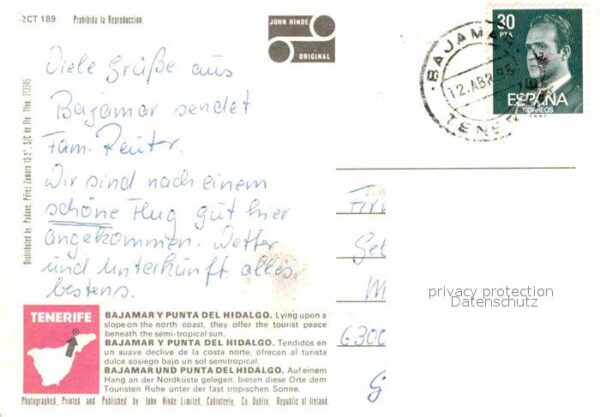 2CT 189 Prohibida la Reproduccion
JOHN HINDE
ORIGINAL
30
PTA
ESPAÑA
CORREOS
BAJAMAR
12.ABR.85
TENER
Viele Grüße aus
Bajamar sendet
Fam. Reuter.
Wir sind nach einem
schöne Flug gut hier
angekommen. Wetter
und Unterkunft alles
bestens.
Distributed by
Firm
Gel
M
6300
G
privacy protection
Datenschutz
TENERIFE
BAJAMAR Y PUNTA DEL HIDALGO. Lying upon a
slope on the north coast, they offer the tourist peace
beneath the semi-tropical sun.
BAJAMAR Y PUNTA DEL HIDALGO. Tendidos en
un suave declive de la costa norte, ofrecen al turista
dulce sosiego bajo un sol semitropical.
BAJAMAR UND PUNTA DEL HIDALGO. Auf einem
Hang an der Nordküste gelegen, bieten diese Orte dem
Touristen Ruhe unter der fast tropischen Sonne.
Photographed, Printed and Published by John Hinde Limited, Cabinteely, Co. Dublin, Republic of Ireland.